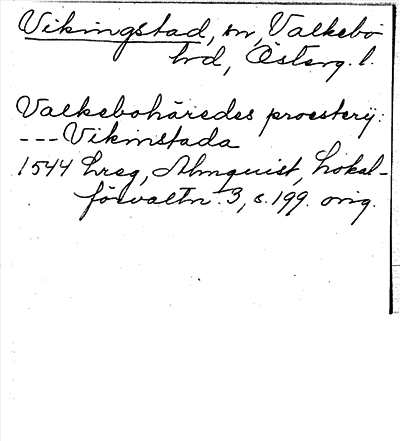 Vikingstad, sn, Valkebo
hd, Österg. l.
Valkebohäredes proesterij:
--- Vikinstada
1544 hreg, Almquist, Lokal-
förvaltn. 3, s. 199. orig.